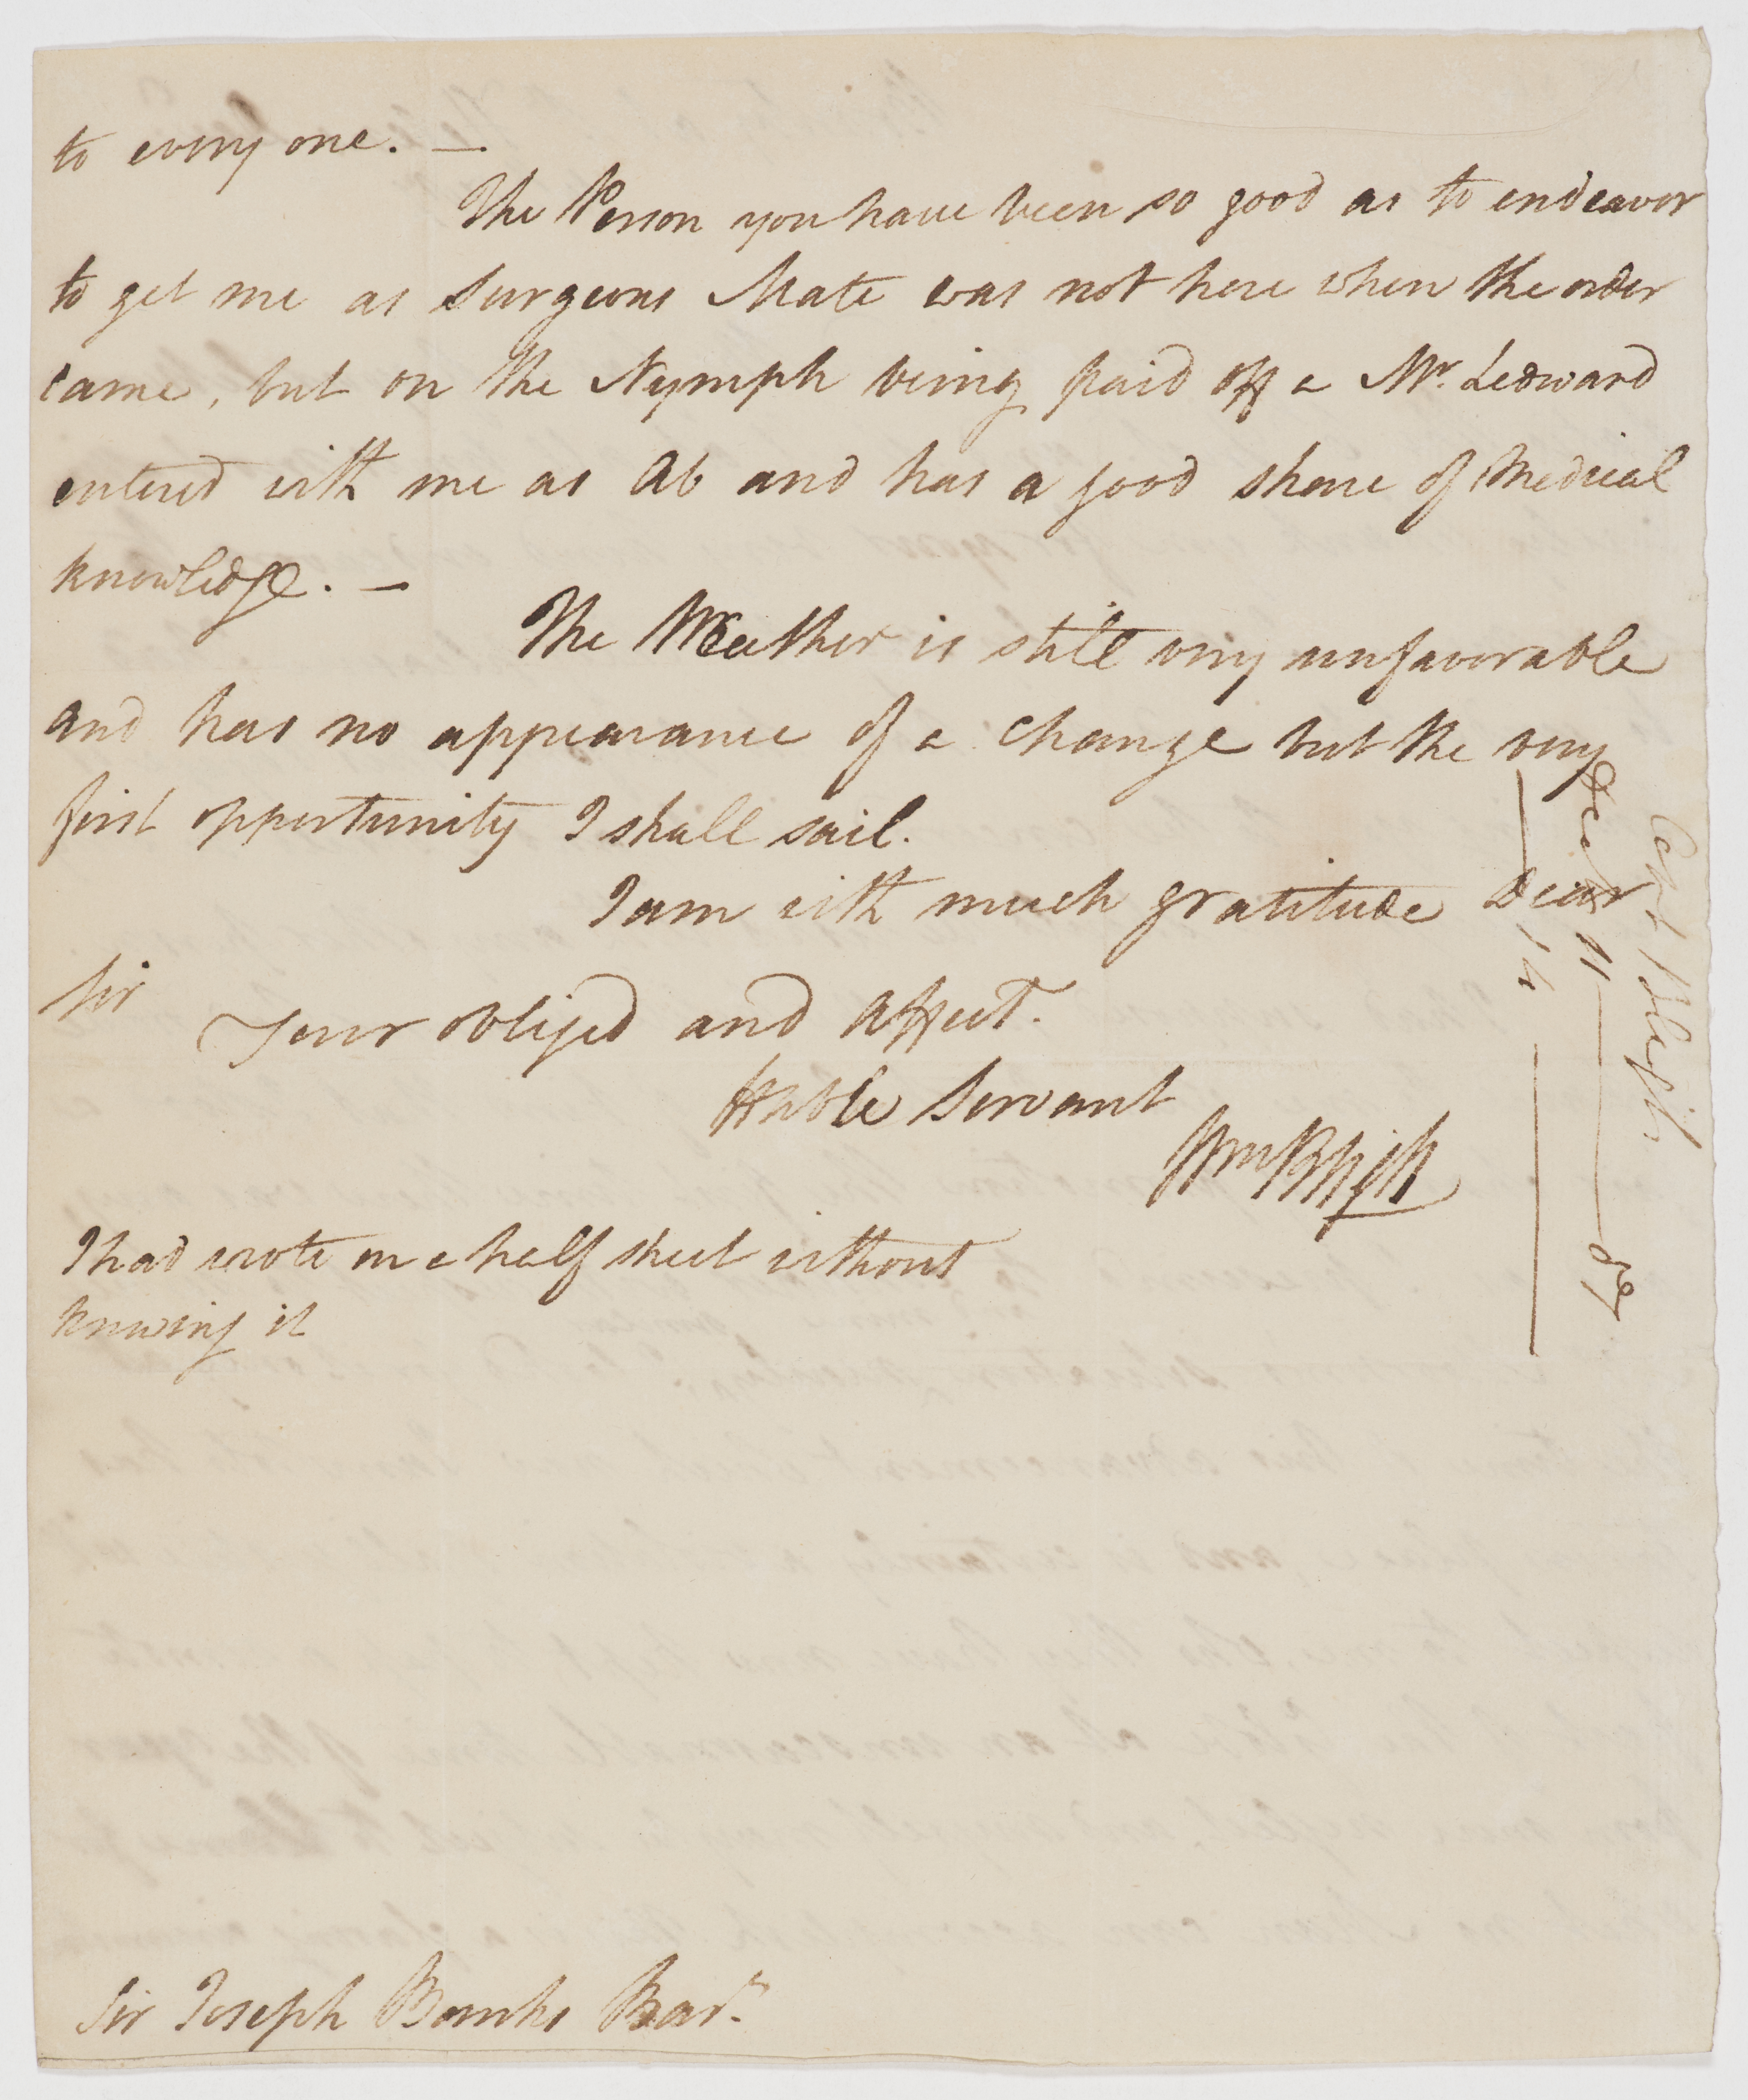 to every one. —
The Person you have been so good as to endeavor
to get me as Surgeons Mate was not here when the order
came, but on the Nymph being paid off a Mr. Ledward
entered with me as Ab and has a good share of Medical
knowledge. —
The Weather is still very unfavorable
and has no appearance of a change but the very
first opportunity I shall sail.
I am with much gratitude Dear
Sir
Your obliged and affect.
Hble Servant
Wm Bligh
I had wrote on a half sheet without
knowing it
Sir Joseph Banks Bart.
Capt Bligh
Decb 11 — 87
— 14 —